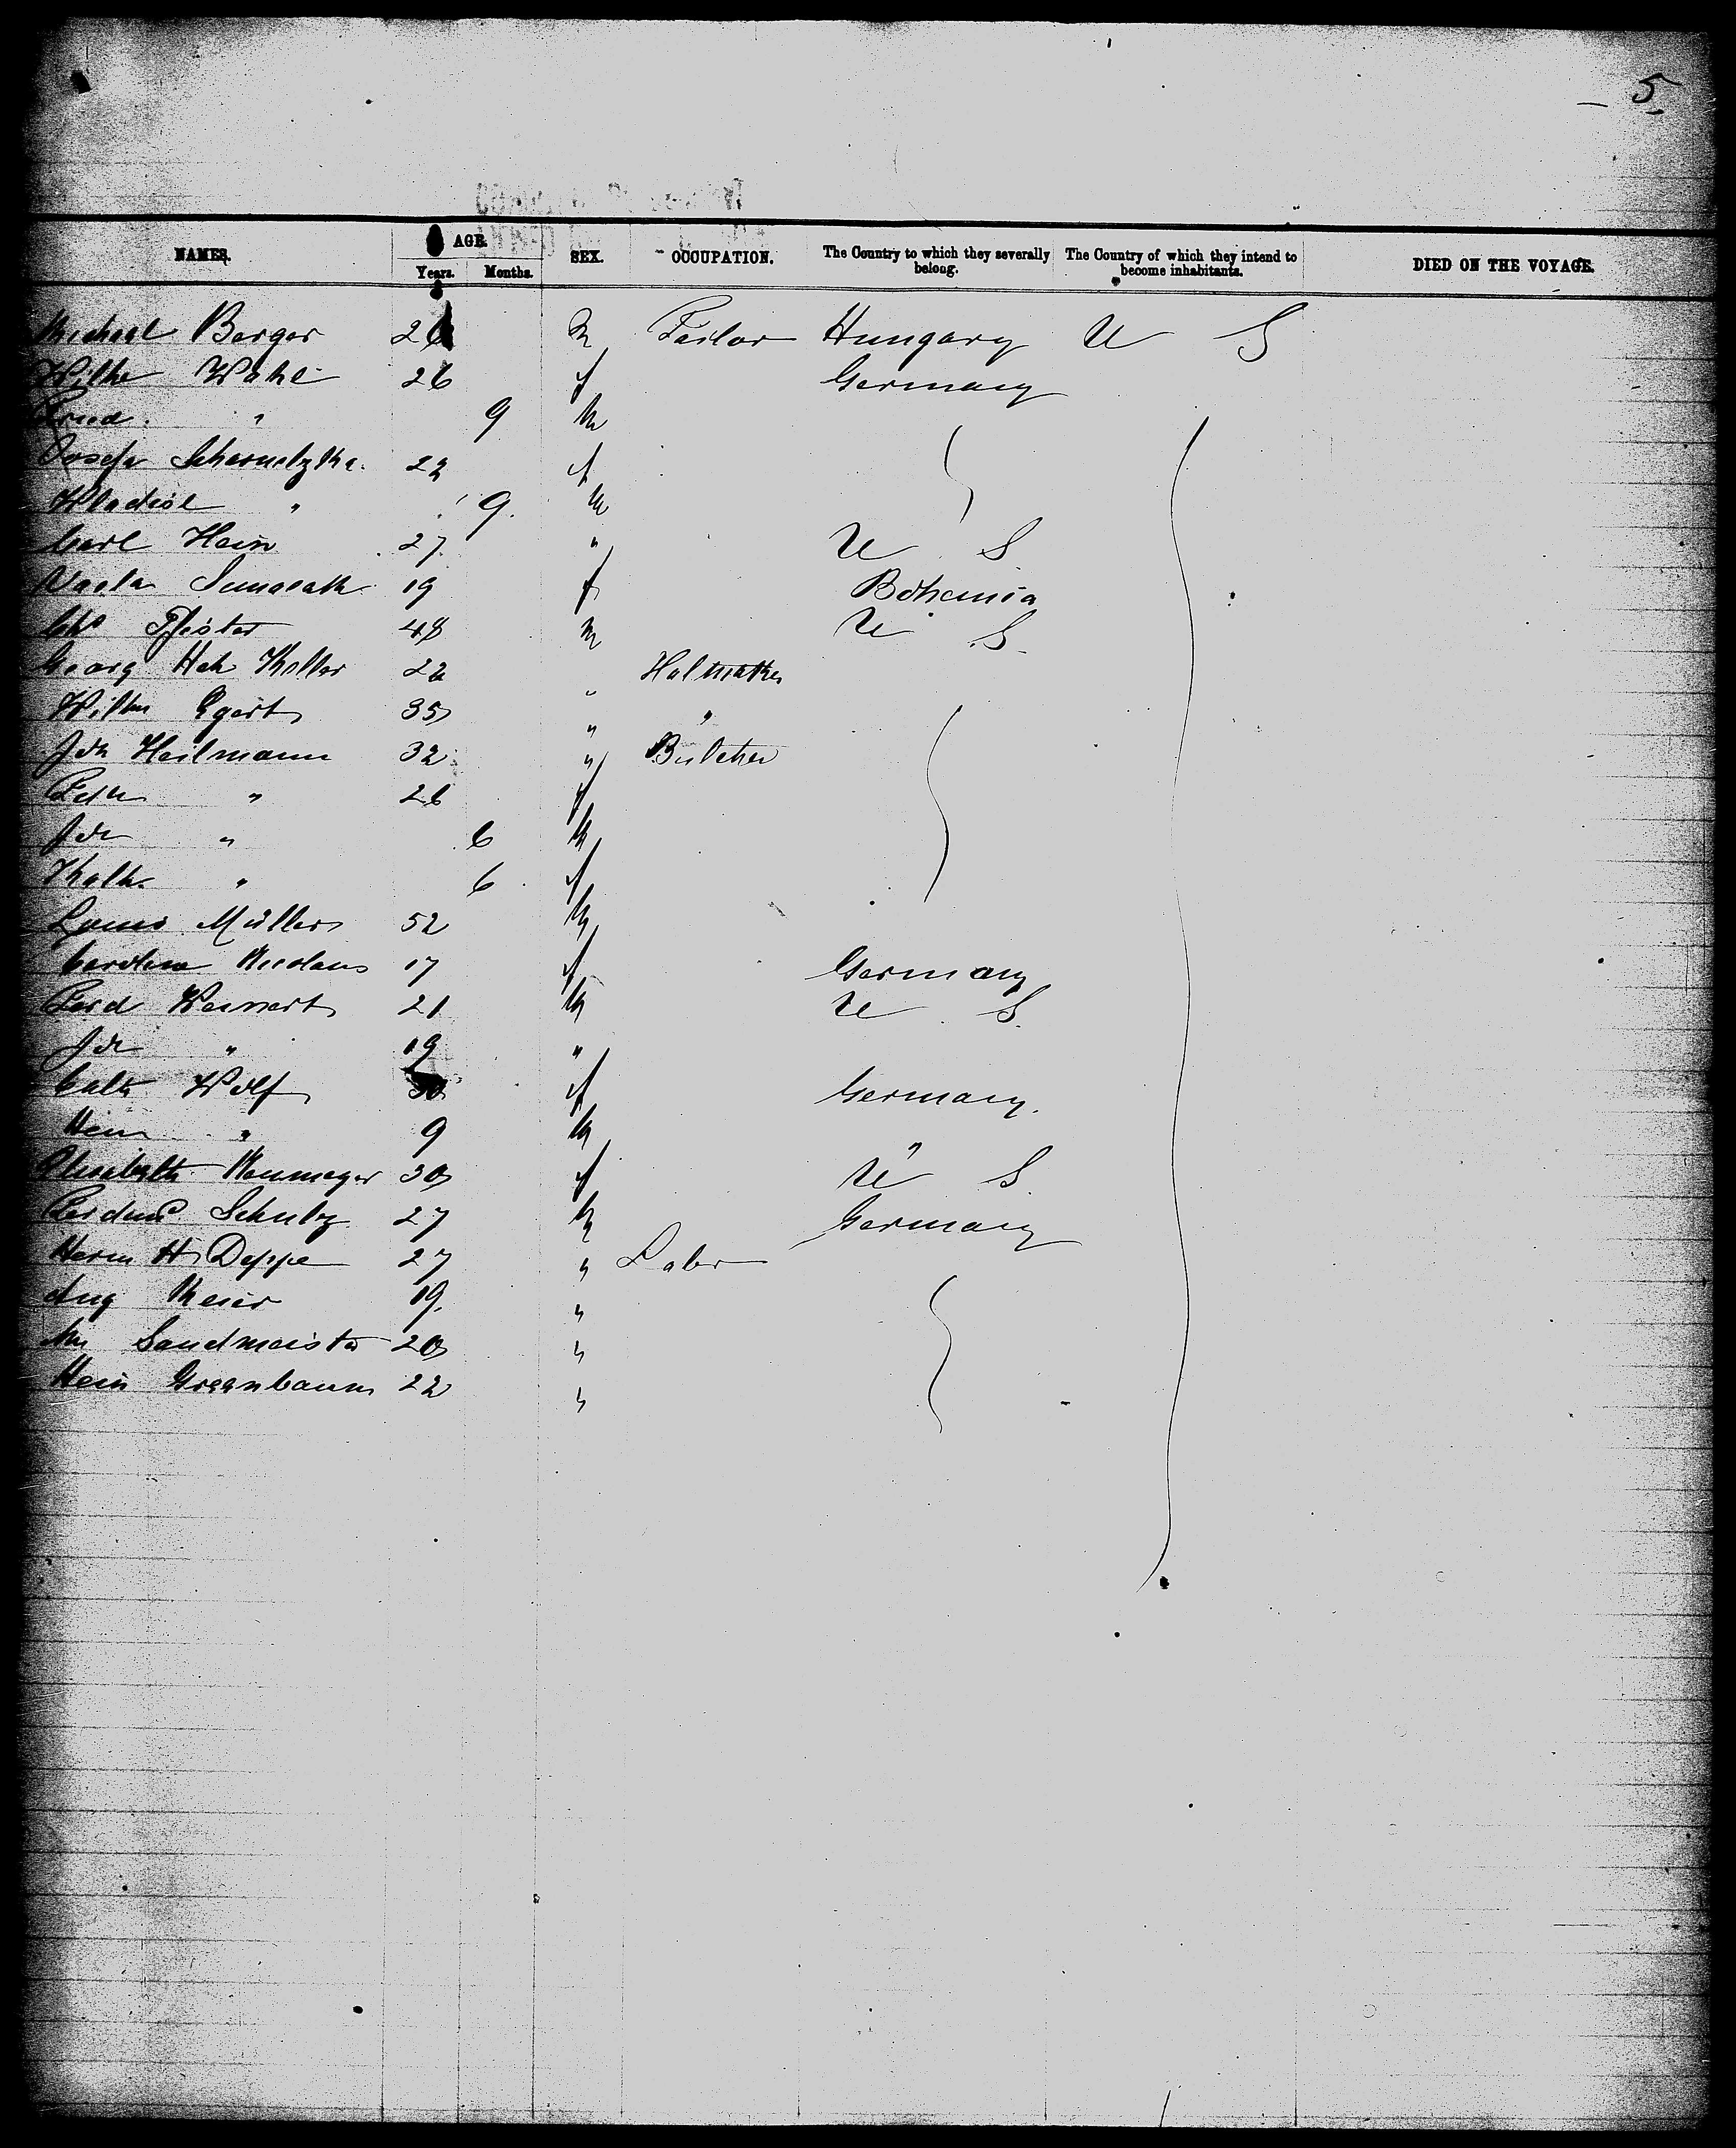 5
NAMES. AGE. Years. Months. SEX. OCCUPATION. The Country to which they severally belong. The Country of which they intend to become inhabitants. DIED ON THE VOYAGE.
Michael Berger 26 M Tailor Hungary U S
Wilhe Wahl 26 f Germany
Fried. " 9 M
Josefa 22 f
Wladisl " 9. M
Carl Hein 27 " U S
19 f Bohemia
Chs Pfister 48 M U S
Georg Hch Koller 22 " Hatmaker
Wilhm Egert 35 " "
Joh Heilmann 32 " Butcher
" 26 f
Joh " 6 M
Kath. " 6 f
Louis Müller 52 M
Carolina Nicolaus 17 f Germany
Ferd Weinert 21 M U S
Joh " 19 "
Cath Wolf 30 f Germany.
Hein " 9 M "
Elisabeth Neumeyer 30 f U S
Ferdind Schulz 27 M Germany
Herm H Deppe 27 " Labr
Aug Meier 19 "
Sandmeister 20 "
Hein Greenbaum 22 "